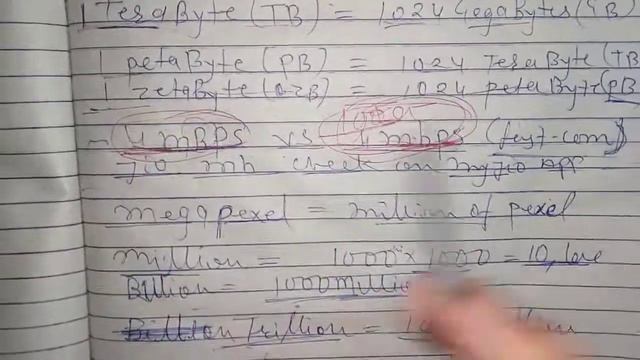 1 TeraByte (TB) = 1024 GegaBytes (GB)
1 petaByte (PB) = 1024 TeraByte (TB
1 zetaByte (ZB) = 1024 petaByte (PB
- 4 mBPS vs 4 mbps (fast.com)
Jio mb check on myJio App
mega pexel = million of pexel
million = 1000 × 1000 = 10,
Billion = 1000 milli
Trillion =